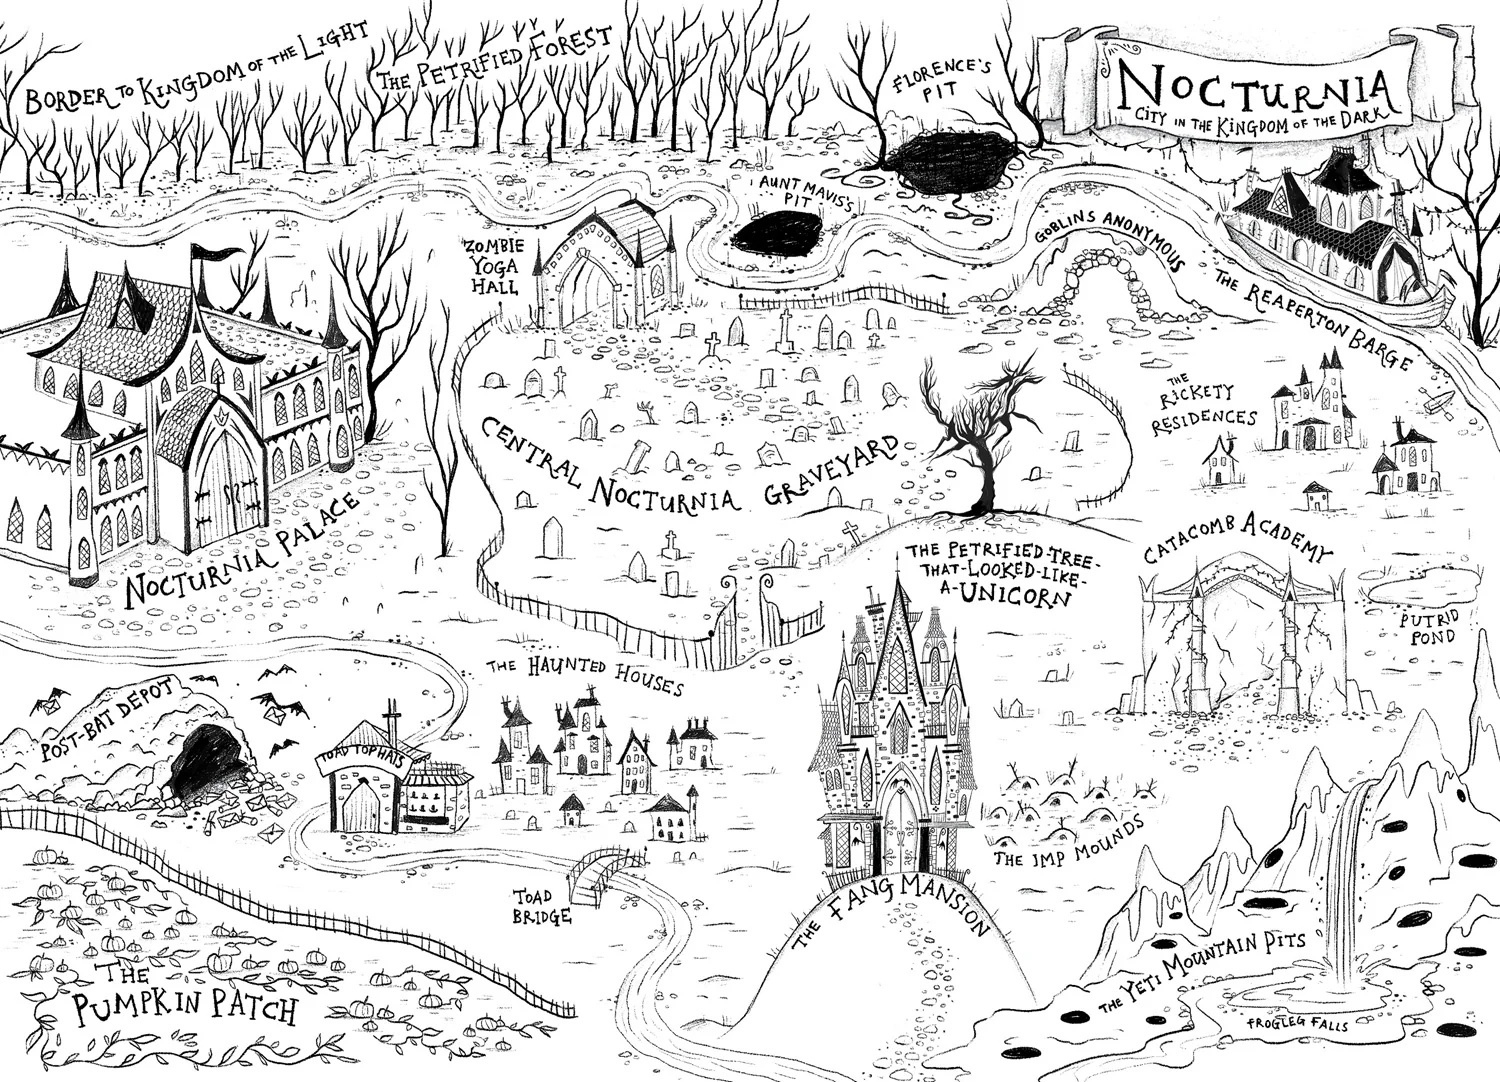 BORDER TO KINGDOM OF THE LIGHT
THE PETRIFIED FOREST
FLORENCE'S
PIT
NOCTURNIA
CITY IN THE KINGDOM OF THE DARK
AUNT MAVIS'S
PIT
ZOMBIE
YOGA
HALL
GOBLINS ANONYMOUS
THE REAPERTON BARGE
THE
RICKETY
RESIDENCES
CENTRAL NOCTURNIA GRAVEYARD
NOCTURNIA PALACE
THE PETRIFIED-TREE-
THAT-LOOKED-LIKE-
A-UNICORN
CATACOMB ACADEMY
PUTRID
POND
THE HAUNTED HOUSES
POST-BAT DEPOT
TOAD TOP HATS
THE IMP MOUNDS
TOAD
BRIDGE
THE FANG MANSION
THE YETI MOUNTAIN PITS
THE
PUMPKIN PATCH
FROGLEG FALLS